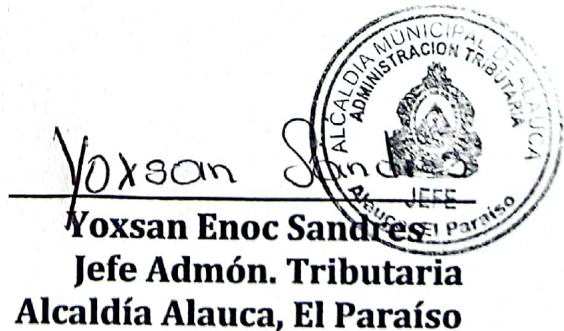 ALCALDIA MUNICIPAL DE ALAUCA
ADMINISTRACION TRIBUTARIA
JEFE
Alauca, El Paraíso
Yoxsan Sandres
Yoxsan Enoc Sandres
Jefe Admón. Tributaria
Alcaldía Alauca, El Paraíso